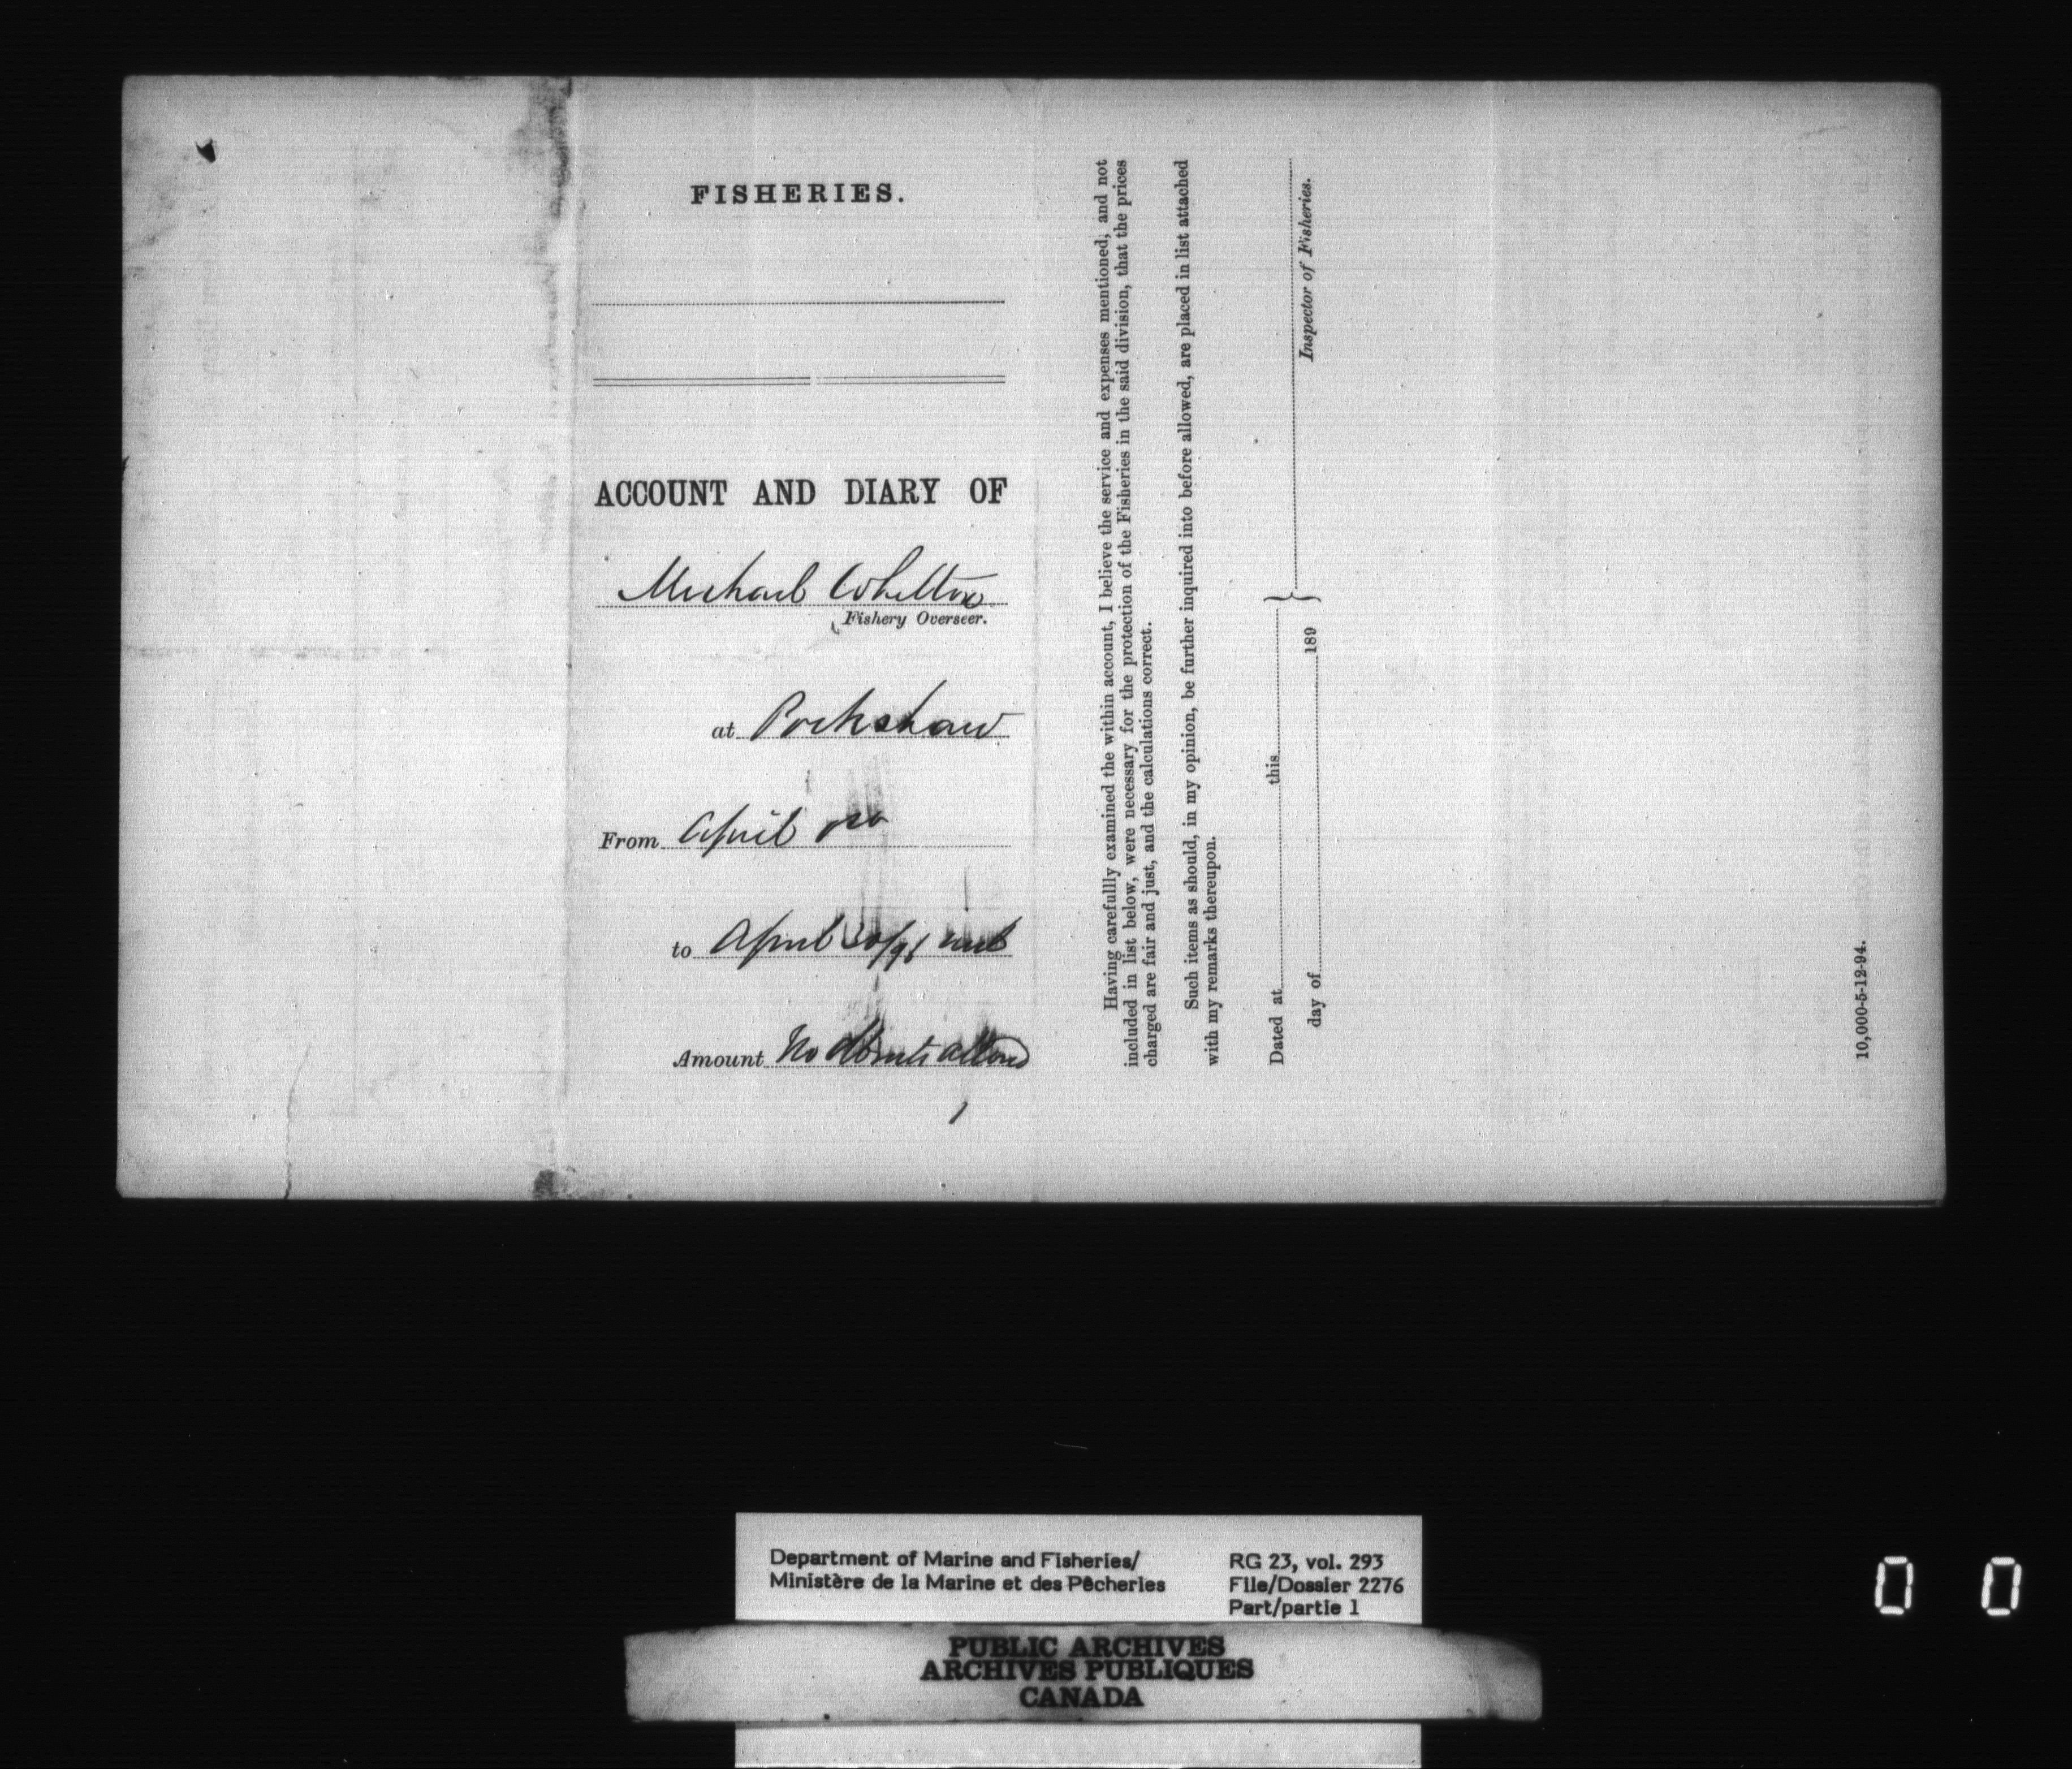 FISHERIES.
ACCOUNT AND DIARY OF
Michael Whelton
Fishery Overseer.
at Pockshaw
From April
to April 30/96
Amount No
Having carefullly examined the within account, I believe the service and expenses mentioned, and not
included in list below, were necessary for the protection of the Fisheries in the said division, that the prices
charged are fair and just, and the calculations correct.
Such items as should, in my opinion, be further inquired into before allowed, are placed in list attached
with my remarks thereupon.
Dated at this
day of 189
Inspector of Fisheries.
10,000-5-12-94.
Department of Marine and Fisheries/
Ministère de la Marine et des Pêcheries
RG 23, vol. 293
File/Dossier 2276
Part/partie 1
PUBLIC ARCHIVES
ARCHIVES PUBLIQUES
CANADA
0 0